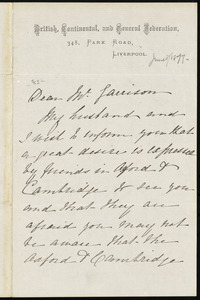 British, Continental, and General Federation,
348, PARK ROAD,
LIVERPOOL.
June 1877.
Dear Mr. Garrison
My husband and
I wish to inform you that
a great desire is expressed
by friends in Oxford &
Cambridge to see you
and that they are
afraid you may not
be aware that the
Oxford & Cambridge